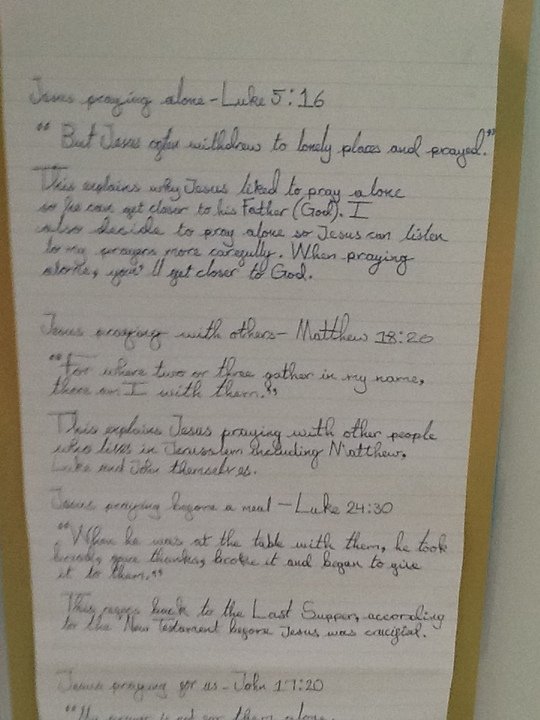 Jesus praying alone - Luke 5:16
"But Jesus often withdrew to lonely places and prayed."
This explains why Jesus liked to pray alone
so he can get closer to his Father (God). I
also decide to pray alone so Jesus can listen
to my prayers more carefully. When praying
alone, you'll get closer to God.
Jesus praying with others - Matthew 18:20
"For where two or three gather in my name,
there am I with them."
This explains Jesus praying with other people
who lives in Jerusalem including Matthew,
Luke and John themselves.
Jesus praying before a meal - Luke 24:30
"When he was at the table with them, he took
bread, gave thanks, broke it and began to give
it to them."
This refers back to the Last Supper, according
to the New Testament before Jesus was crucifial.
Jesus praying for us - John 17:20
"My prayer is not for them alone.